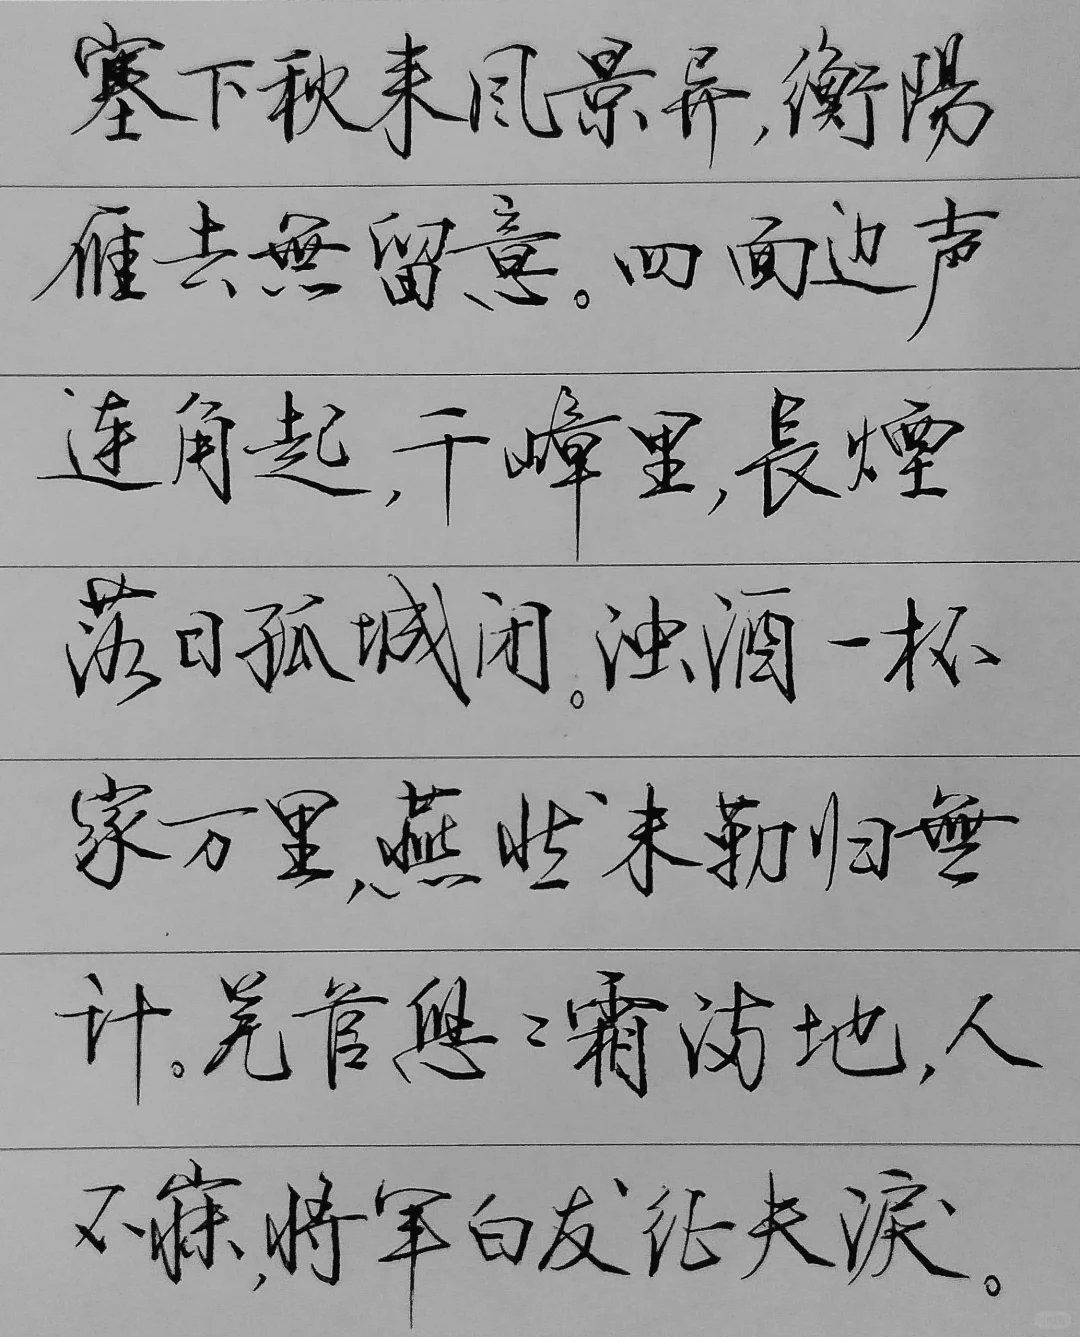 塞下秋来风景异,衡陽
雁去無留意。四面边声
连角起,千嶂里,長煙
落日孤城闭。浊酒一杯
家万里,燕然未勒归無
计。羌管悠〻霜满地,人
不寐,将军白发征夫淚。